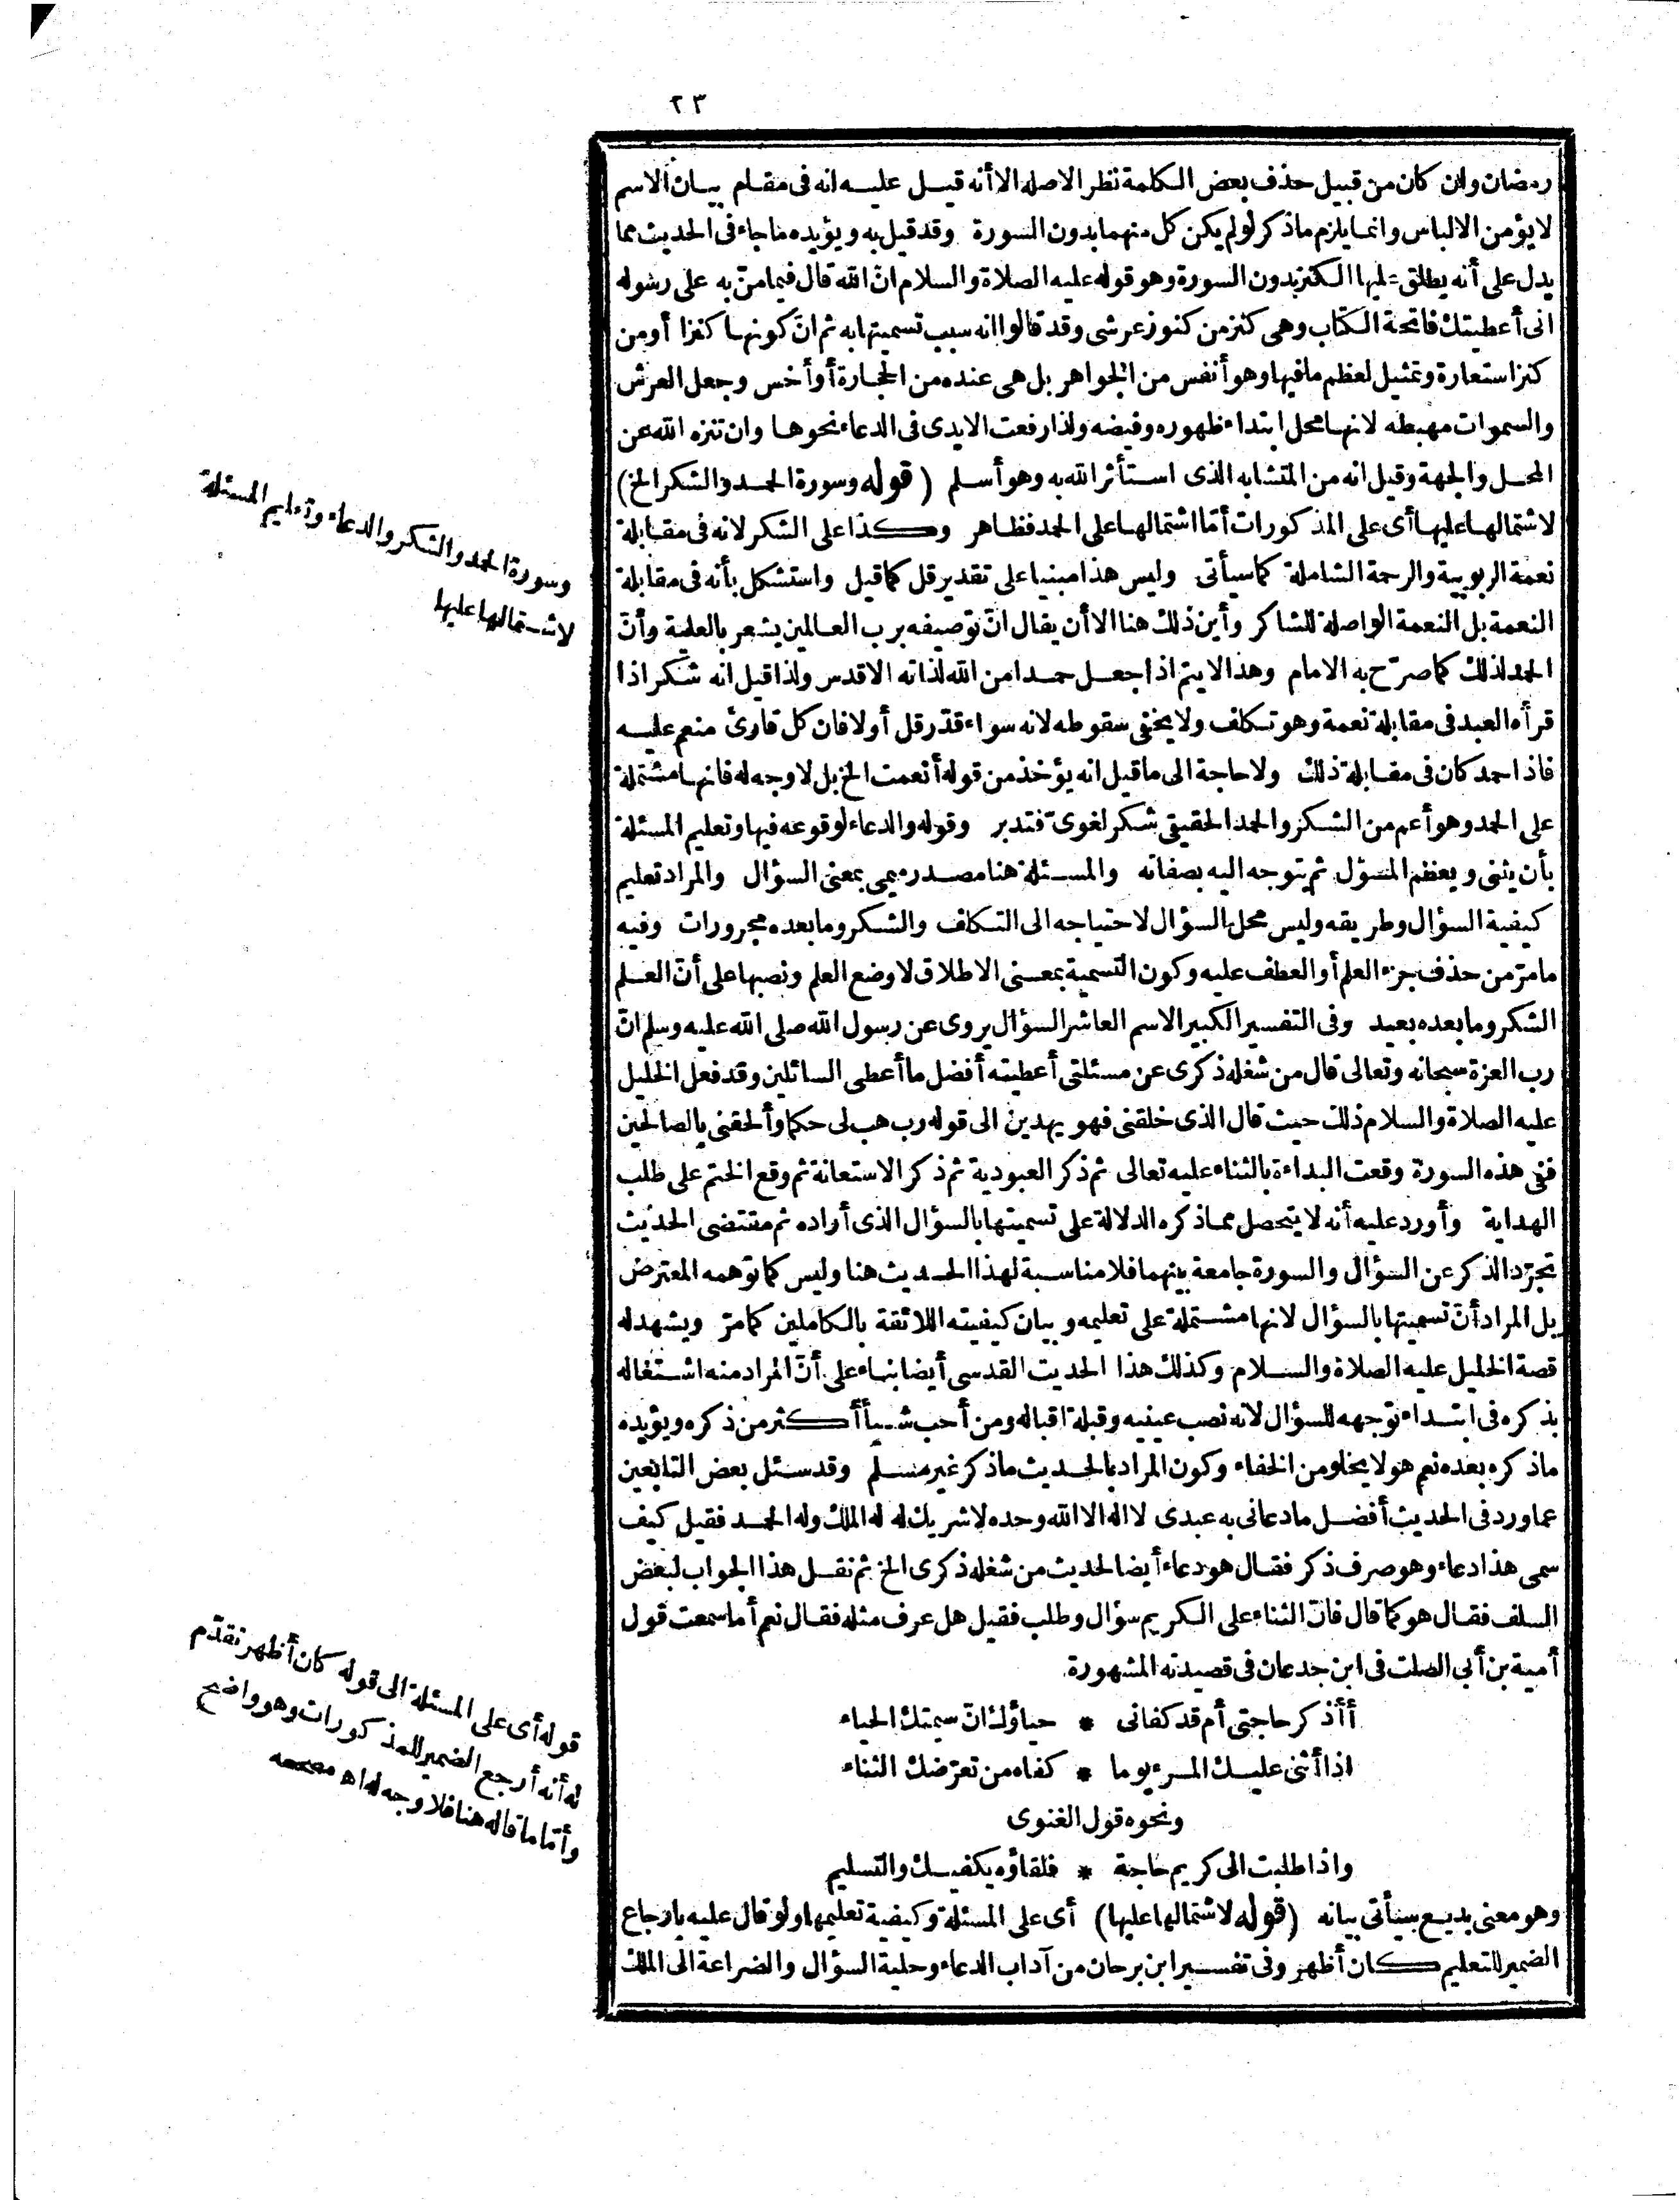 ٢٣
رمضان وان كان من قبيل حذف بعض الكلمة نظر الاصله الا أنه قيل عليه انه فى مقام بيان الاسم
لا يؤمن الالباس وانما يلزم ماذكر لو لم يكن كل منهما بدون السورة وقد قيل به ويؤيده ماجاء فى الحديث مما
يدل على أنه يطلق عليها الكنز بدون السورة وهو قوله عليه الصلاة والسلام انّ الله قال فيما منّ به على رسوله
انى أعطيتك فاتحة الكتاب وهى كنز من كنوز عرشى وقد قالوا انه سبب تسميتها به ثم انّ كونها كنزا أو من
كنز استعارة وتمثيل لعظم مافيها وهو أنفس من الجواهر بل هى عنده من الحجارة أو أخس وجعل العرش
والسموات مهبطه لانها محل ابتداء ظهوره وفيضه ولذا رفعت الايدى فى الدعاء نحوها وان تنزه الله عن
المحل والجهة وقيل انه من المتشابه الذى استأثر الله به وهو أسلم (قوله وسورة الحمد والشكر الخ)
لاشتمالها عليها أى على المذكورات أمّا اشتمالها على الحمد فظاهر وكذا على الشكر لانه فى مقابلة
نعمة الربوبية والرحمة الشاملة كما سيأتى وليس هذا مبنيا على تقدير قل كما قيل واستشكل بأنه فى مقابلة
النعمة بل النعمة الواصلة للشاكر وأين ذلك هنا الا أن يقال انّ توصيفه برب العالمين يشعر بالعلية وأنّ
الحمد لذلك كما صرّح به الامام وهذا لا يتم اذا جعل حمدا من الله لذاته الاقدس ولذا قيل انه شكر اذا
قرأه العبد فى مقابلة نعمة وهو تكلف ولا يخفى سقوطه لانه سواء قدّر قل أو لا فان كل قارئ منعم عليه
فاذا حمد كان فى مقابلة ذلك ولا حاجة الى ماقيل انه يؤخذ من قوله أنعمت الخ بل لا وجه له فانها مشتملة
على الحمد وهو أعم من الشكر والحمد الحقيقى شكر لغوىّ فتدبر وقوله والدعاء لوقوعه فيها وتعليم المسئلة
بأن يثنى ويعظم المسؤل ثم يتوجه اليه بصفاته والمسئلة هنا مصدر ميمى بمعنى السؤال والمراد تعليم
كيفية السؤال وطريقه وليس محل السؤال لاحتياجه الى التكلف والشكر وما بعده مجرورات وفيه
مامرّ من حذف جزء العلم أو العطف عليه وكون التسمية بمعنى الاطلاق لا وضع العلم ونصبها على أنّ العلم
الشكر وما بعده بعيد وفى التفسير الكبير الاسم العاشر السؤال يروى عن رسول الله صلى الله عليه وسلم انّ
رب العزة سبحانه وتعالى قال من شغله ذكرى عن مسئلتى أعطيته أفضل ما أعطى السائلين وقد فعل الخليل
عليه الصلاة والسلام ذلك حيث قال الذى خلقنى فهو يهدين الى قوله رب هب لى حكما وألحقنى بالصالحين
ففى هذه السورة وقعت البداءة بالثناء عليه تعالى ثم ذكر العبودية ثم ذكر الاستعانة ثم وقع الختم على طلب
الهداية وأورد عليه أنه لا يتحصل مما ذكره الدلالة على تسميتها بالسؤال الذى أراده ثم مقتضى الحديث
تجرّد الذكر عن السؤال والسورة جامعة بينهما فلا مناسبة لهذا الحديث هنا وليس كما توهمه المعترض
بل المراد أنّ تسميتها بالسؤال لانها مشتملة على تعليمه وبيان كيفيته اللائقة بالكاملين كما مرّ ويشهد له
قصة الخليل عليه الصلاة والسلام وكذلك هذا الحديث القدسى أيضا بناء على أنّ المراد منه اشتغاله
بذكره فى ابتداء توجهه للسؤال لانه نصب عينيه وقبلة اقباله ومن أحب شيأ أكثر من ذكره ويؤيده
ماذكره بعده نعم هو لا يخلو من الخفاء وكون المراد بالحديث ماذكر غير مسلم وقد سئل بعض التابعين
عما ورد فى الحديث أفضل مادعانى به عبدى لا اله الا الله وحده لا شريك له له الملك وله الحمد فقيل كيف
سمى هذا دعاء وهو صرف ذكر فقال هو دعاء أيضا لحديث من شغله ذكرى الخ ثم نقل هذا الجواب لبعض
السلف فقال هو كما قال فانّ الثناء على الكريم سؤال وطلب فقيل هل عرف مثله فقال نعم أما سمعت قول
أمية بن أبى الصلت فى ابن جدعان فى قصيدته المشهورة
أأذكر حاجتى أم قد كفانى * حياؤك انّ سيمتك الحياء
اذا أثنى عليك المرء يوما * كفاه من تعرّضك الثناء
ونحوه قول الغنوى
واذا طلبت الى كريم حاجة * فلقاؤه يكفيك والتسليم
وهو معنى بديع سيأتى بيانه (قوله لاشتمالها عليها) أى على المسئلة وكيفية تعليمها ولو قال عليه بارجاع
الضمير للتعليم كان أظهر وفى تفسير ابن برجان من آداب الدعاء وحلية السؤال والضراعة الى الملك
وسورة الحمد والشكر والدعاء وتعليم المسئلة
لاشتمالها عليها
قوله أى على المسئلة الى قوله كان أظهر تقدّم
له أنه أرجع الضمير للمذكورات وهو واضح
وأمّا ماقاله هنا فلا وجه له اه مصححه